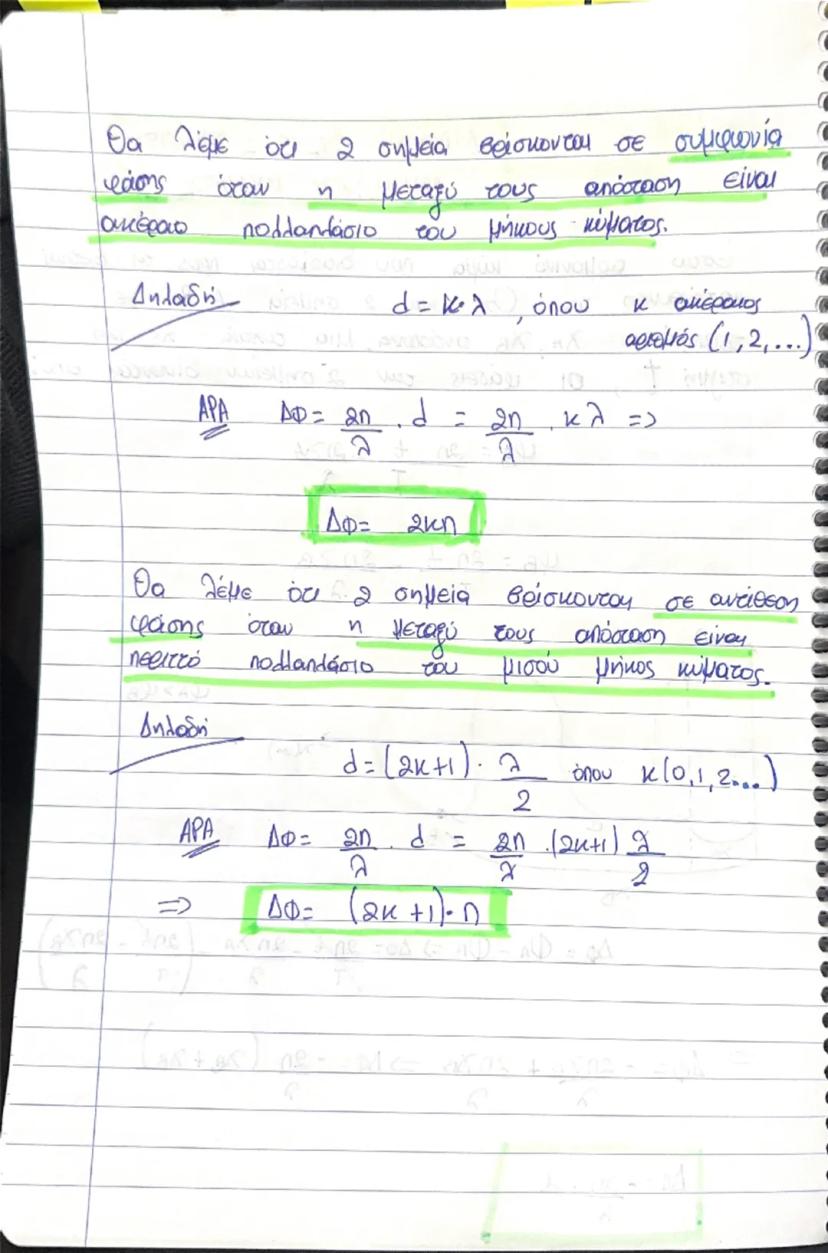 Θα λέμε ότι 2 σημεία βρίσκονται σε συμφωνία
φάσης όταν η μεταξύ τους απόσταση είναι
ακέραιο πολλαπλάσιο του μήκους κύματος.
Δηλαδή d = κ·λ , όπου κ ακέραιος
αριθμός (1, 2, ...)
ΑΡΑ ΔΦ = 2π/λ · d = 2π/λ · κλ =>
ΔΦ = 2κπ
Θα λέμε ότι 2 σημεία βρίσκονται σε αντίθεση
φάσης όταν η μεταξύ τους απόσταση είναι
περιττό πολλαπλάσιο του μισού μήκος κύματος.
Δηλαδή
d = (2κ+1) · λ/2 όπου κ(0,1,2...)
ΑΡΑ ΔΦ = 2π/λ · d = 2π/λ · (2κ+1) λ/2
=> ΔΦ = (2κ+1)·π